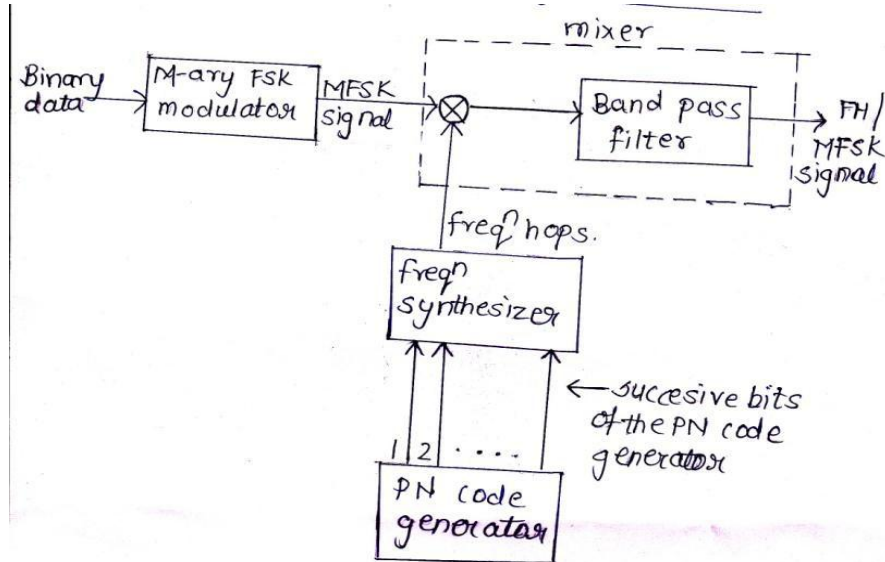 mixer
Binary
data
M-ary FSK
modulator
MFSK
signal
Band pass
filter
FH/
MFSK
signal
freqⁿ hops.
freqⁿ
synthesizer
succesive bits
of the PN code
generator
1 2 ....
PN code
generator